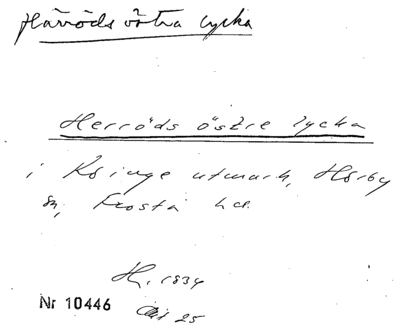 Härröds östra lycka
Herröds östre lycka
i Ksinge utmark, Hörby
sn, Frosta hd.
H. 1834
Nr 10446
Akt 25